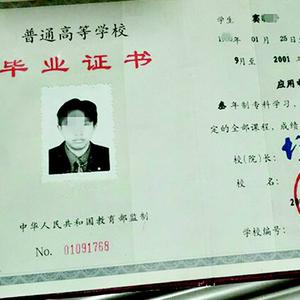 普通高等学校
毕业证书
中华人民共和国教育部监制
No. 01091768
学生
01月25
9月至 2001
应用
叁年制专科学习,
定的全部课程,成绩
校(院)长:
20
学校编号: